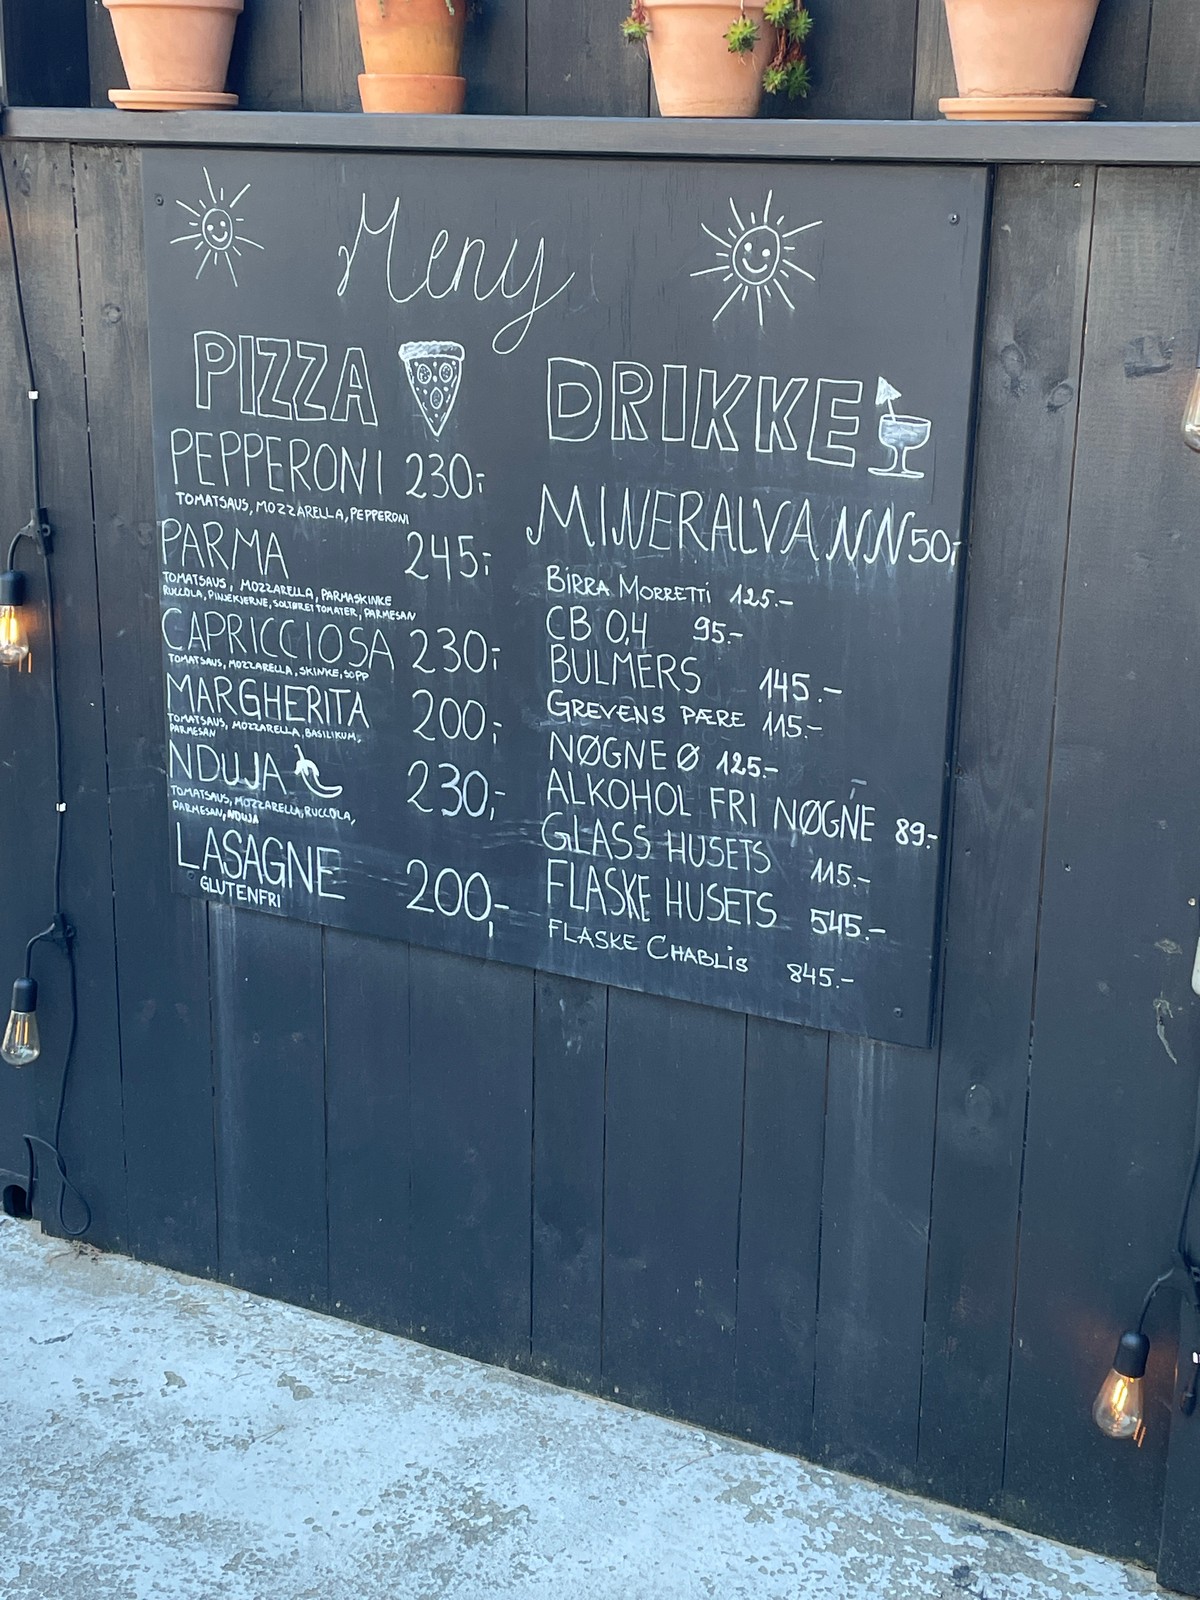 Meny
PIZZA
PEPPERONI 230,-
TOMATSAUS, MOZZARELLA, PEPPERONI
PARMA 245,-
TOMATSAUS, MOZZARELLA, PARMASKINKE
RUCCOLA, PINJEKJERNE, SOLTØRET TOMATER, PARMESAN
CAPRICCIOSA 230,-
TOMATSAUS, MOZZARELLA, SKINKE, SOPP
MARGHERITA 200,-
TOMATSAUS, MOZZARELLA, BASILIKUM,
PARMESAN
NDUJA 230,-
TOMATSAUS, MOZZARELLA, RUCCOLA,
PARMESAN, NDUJA
LASAGNE 200,-
GLUTENFRI
DRIKKE
MINERALVANN 50,-
BIRRA MORRETTI 125.-
CB 0,4 95.-
BULMERS 145.-
GREVENS PÆRE 115.-
NØGNE Ø 125.-
ALKOHOL FRI NØGNE 89.-
GLASS HUSETS 115.-
FLASKE HUSETS 545.-
FLASKE CHABLIS 845.-